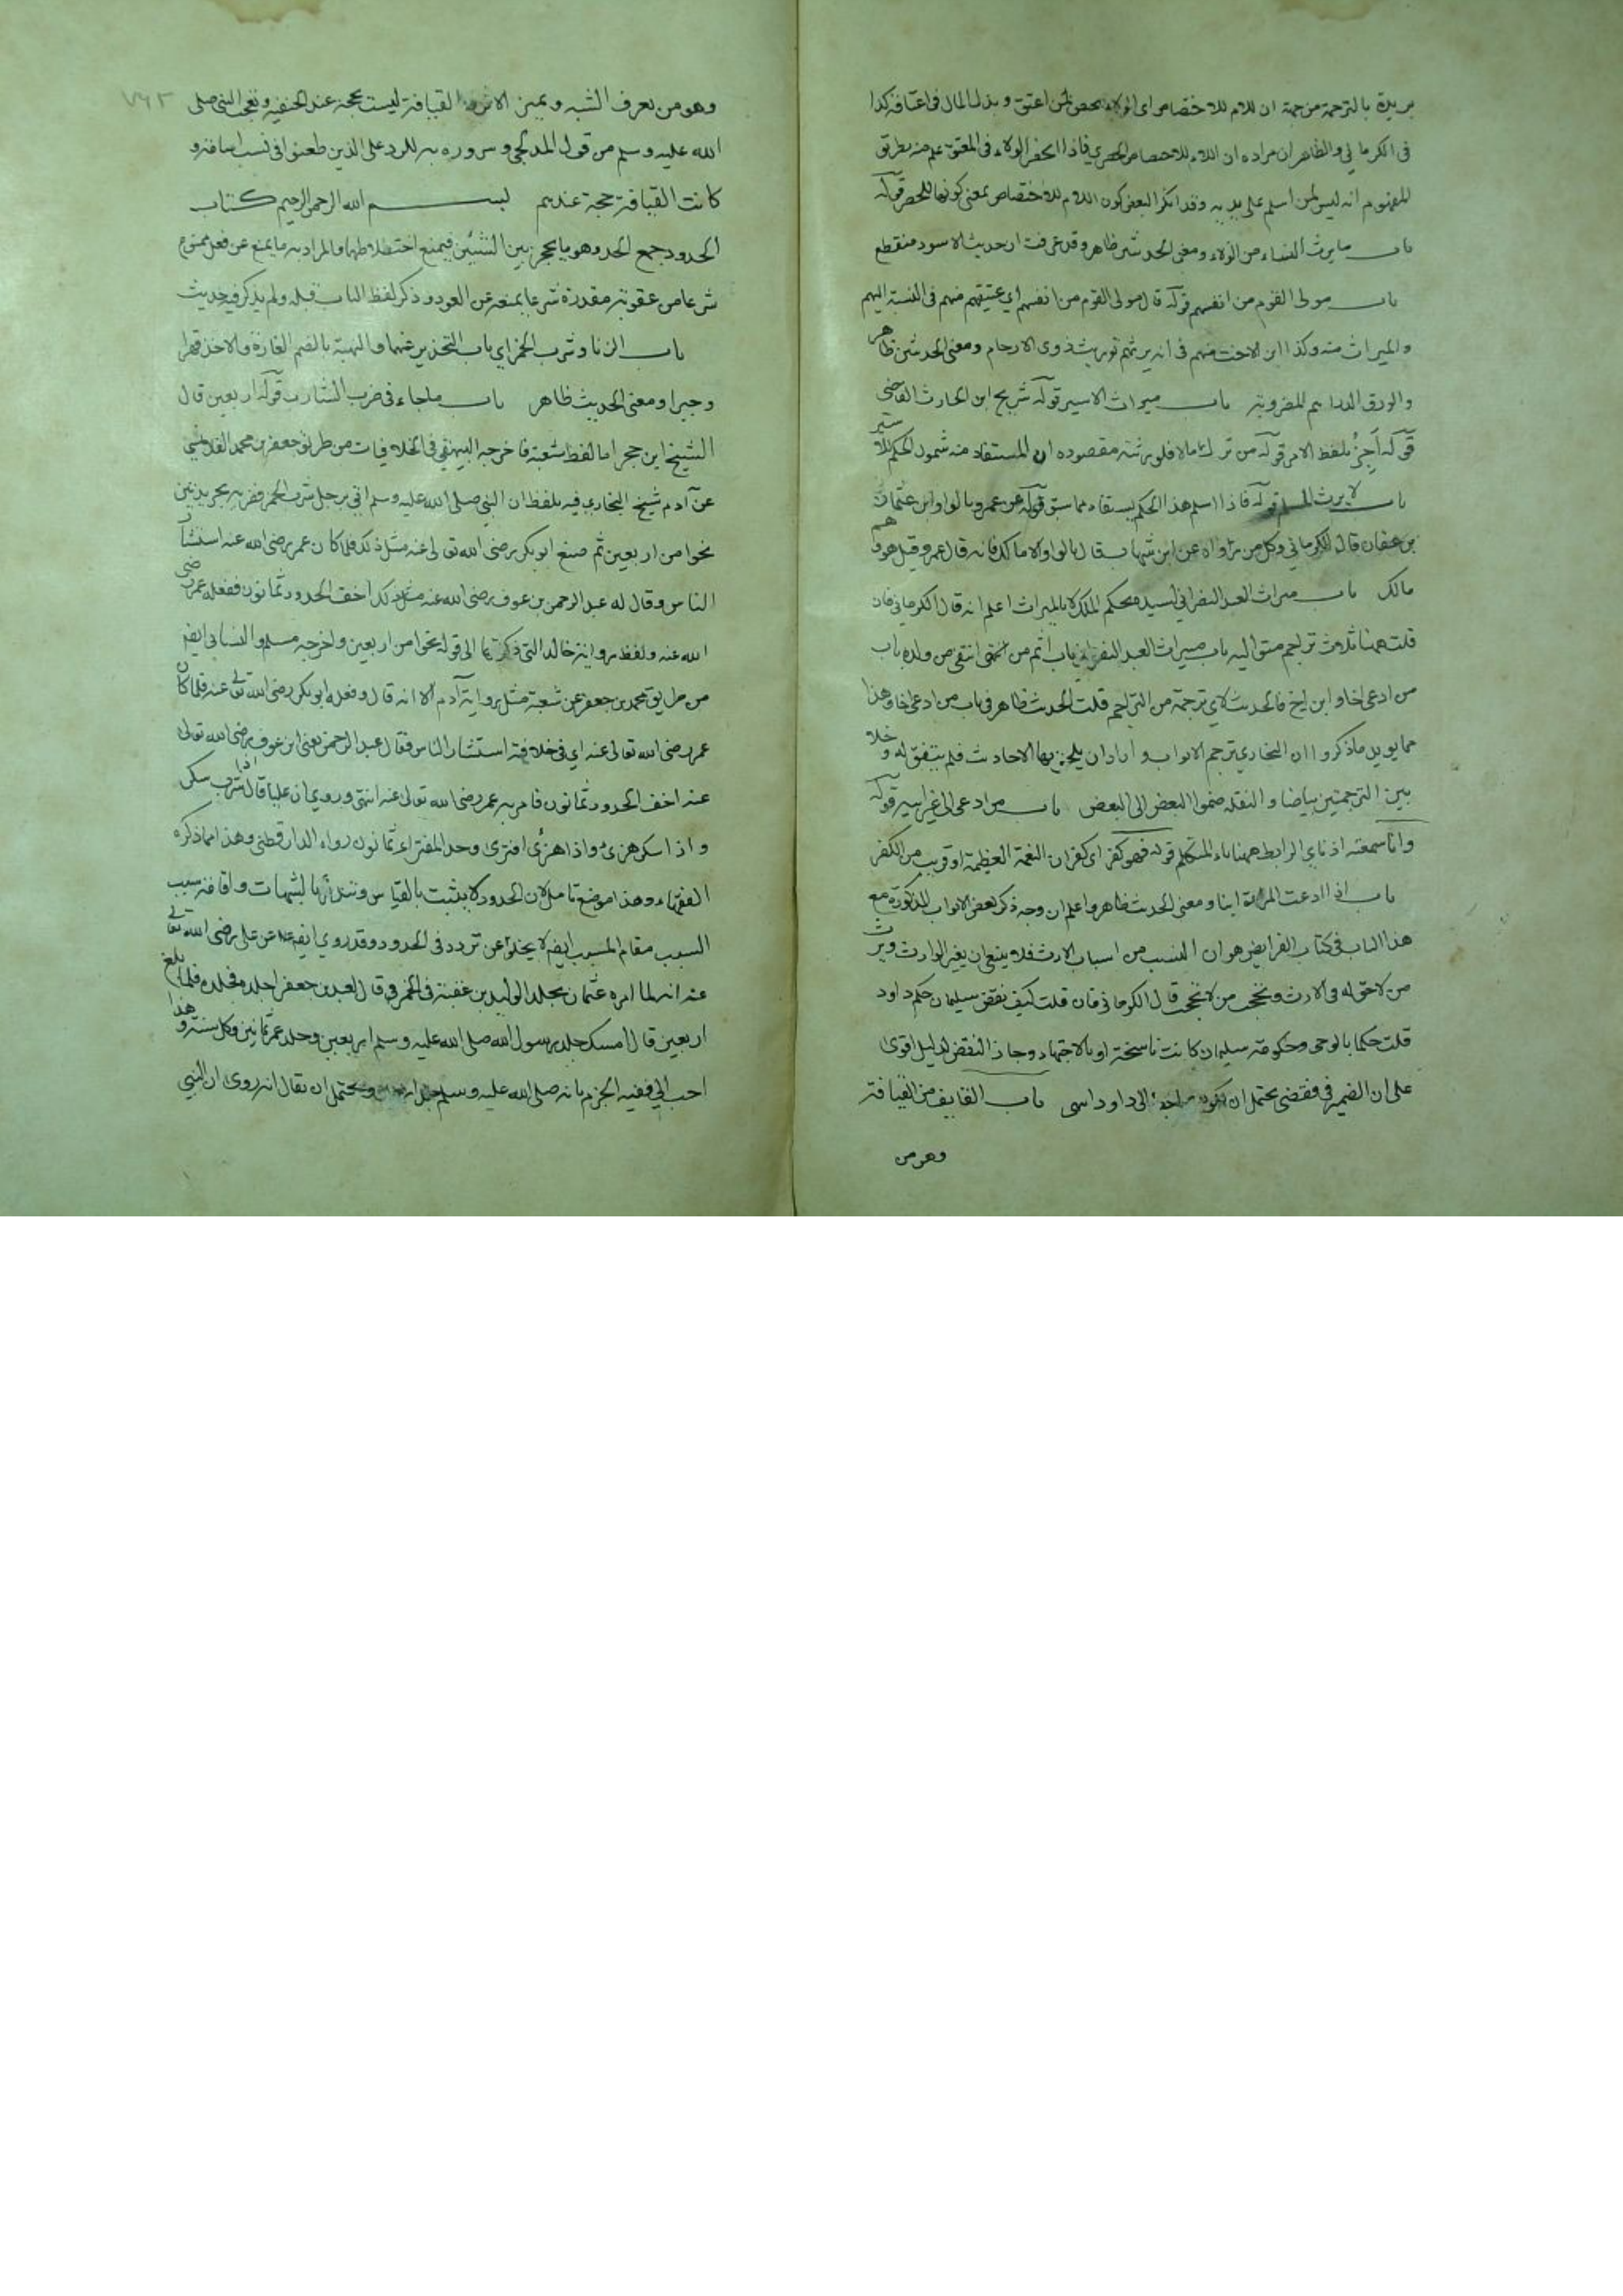 بريرة بالترجمة من جهة ان اللام للاختصاص اى الولاء مختص لمن اعتق و بذل المال فى اعتاقه كذا
فى الكرمانى والظاهر ان مراده ان اللام للاختصاص الحصرى فاذا انحصر الولاء فى المعتق علم منه بطريق
المفهوم انه ليس لمن اسلم على يديه وقد انكر البعض كون اللام للاختصاص بمعنى كونها للحصر قوله
باب ما يرث النساء من الولاء ومعنى الحديثين ظاهر وقد عرفت ان حديث الاسود منقطع
باب مولى القوم من انفسهم قوله قال مولى القوم من انفسهم اى عتيقهم منهم فى النسبة اليهم
والميراث منه وكذا ابن الاخت منهم فى انه يرثهم توريث ذوى الارحام ومعنى الحديثين ظاهر
والورق الدراهم المضروبة باب ميراث الاسير قوله شريح ابن الحارث القاضى
قوله أجز بلفظ الامر قوله من ترك مالا فلورثته مقصوده ان المستفاد منه شمول الحكم للاسير
باب لا يرث المسلم قوله فاذا اسلم هذا الحكم يستفاد مما سبق قوله عن عمرو بالواو ابن عثمان
بن عفان قال الكرمانى وكل من رواه عن ابن شهاب قال بالواو الا مالك فانه قال عمر وقيل هو وهم
مالك باب ميراث العبد النصرانى لسيده بحكم الملك لا بالميراث اعلم انه قال الكرمانى فان
قلت ههنا ثلاث تراجم متوالية باب ميراث العبد النصرانى باب اثم من انتفى من ولده باب
من ادعى اخا او ابن اخ فالحديث لاى ترجمة من التراجم قلت الحديث ظاهر فى باب من ادعى اخا وهذا
مما يؤيد ما ذكروا ان البخارى ترجم الابواب و اراد ان يلحق بها الاحاديث فلم يتفق له و خلا
بين الترجمتين بياضا و النقلة ضموا البعض الى البعض باب من ادعى الى غير ابيه قوله
وانا سمعته اذناى الرابط ههنا ياء المتكلم قوله فهو كفر اى كفران النعمة العظيمة او قريب من الكفر
باب اذا ادعت المراة ابنا ومعنى الحديث ظاهر واعلم ان وجه ذكر بعض الابواب المذكورة مع
هذا الباب فى كتاب الفرايض هو ان النسب من اسباب الارث فلا ينبغى ان يغير الوارث ويرث
من لا حق له فى الارث ويحجب من لا يحجب قال الكرمانى فان قلت كيف نقض سليمان حكم داود
قلت حكما بالوحى وحكومة سليمان كانت ناسخة او بالاجتهاد وجاز النقض لدليل اقوى
على ان الضمير فى فقضى يحتمل ان يكون راجعا الى داود انتهى باب القايف من القيافة
وهو من
٧٦٣
وهو من يعرف الشبه ويميز الاثر القيافة ليست بحجة عند الحنفية وتعجب النبى صلى
الله عليه وسلم من قول المدلجى وسروره به للرد على الذين طعنوا فى نسب اسامة و
كانت القيافة حجة عندهم بسم الله الرحمن الرحيم كتاب
الحدود جمع الحد وهو ما يحجز بين الشيئين فيمنع اختلاطهما والمراد به ما يمنع عن فعل ممنوع
شرعا من عقوبة مقدرة شرعا يمنعه عن العود وذكر لفظ الباب قبله ولم يذكر فيه حديث
باب الزنا وشرب الخمر اى باب التحذير عنهما والنهبة بالضم الغارة والاخذ قهرا
وجبرا ومعنى الحديث ظاهر باب ما جاء فى ضرب الشارب قوله اربعين قال
الشيخ ابن حجر اما لفظ شعبة فاخرجه البيهقى فى الخلافيات من طريق جعفر بن محمد القلانسى
عن آدم شيخ البخارى فيه بلفظ ان النبى صلى الله عليه وسلم اتى برجل شرب الخمر فضربه بجريدتين
نحوا من اربعين ثم صنع ابو بكر رضى الله تعالى عنه مثل ذلك فلما كان عمر رضى الله عنه استشار
الناس وقال له عبد الرحمن بن عوف رضى الله عنه مثل ذلك اخف الحدود ثمانون ففعله عمر رضى
الله عنه ولفظ رواية خالد التى ذكرتها الى قوله نحوا من اربعين واخرجه مسلم والنسائى ايضا
من طريق محمد بن جعفر عن شعبة مثل رواية آدم الا انه قال وفعله ابو بكر رضى الله تعالى عنه فلما كان
عمر رضى الله تعالى عنه اى فى خلافته استشار الناس فقال عبد الرحمن يعنى ابن عوف رضى الله تعالى
عنه اخف الحدود ثمانون فامر به عمر رضى الله تعالى عنه انتهى وروى ان عليا قال اذا شرب سكر
واذا سكر هزى واذا هزى افترى وحد المفترى ثمانون رواه الدارقطنى وهذا مما ذكره
الفقهاء وهذا موضع تامل لان الحدود لا يثبت بالقياس وتندرئ بالشبهات واقامة سبب
السبب مقام المسبب ايضا لا يخلوا عن تردد فى الحدود وقد روى ايضا عن على رضى الله تعالى
عنه انه لما امره عثمان بجلد الوليد بن عقبة فى الخمر قال لعبد بن جعفر اجلده فجلده فلما بلغ
اربعين قال امسك جلد رسول الله صلى الله عليه وسلم اربعين وجلد عمر ثمانين وكل سنة وهذا
احب الى ففيه الجزم بانه صلى الله عليه وسلم جلد اربعين ويحتمل ان يقال انه روى ان النبى